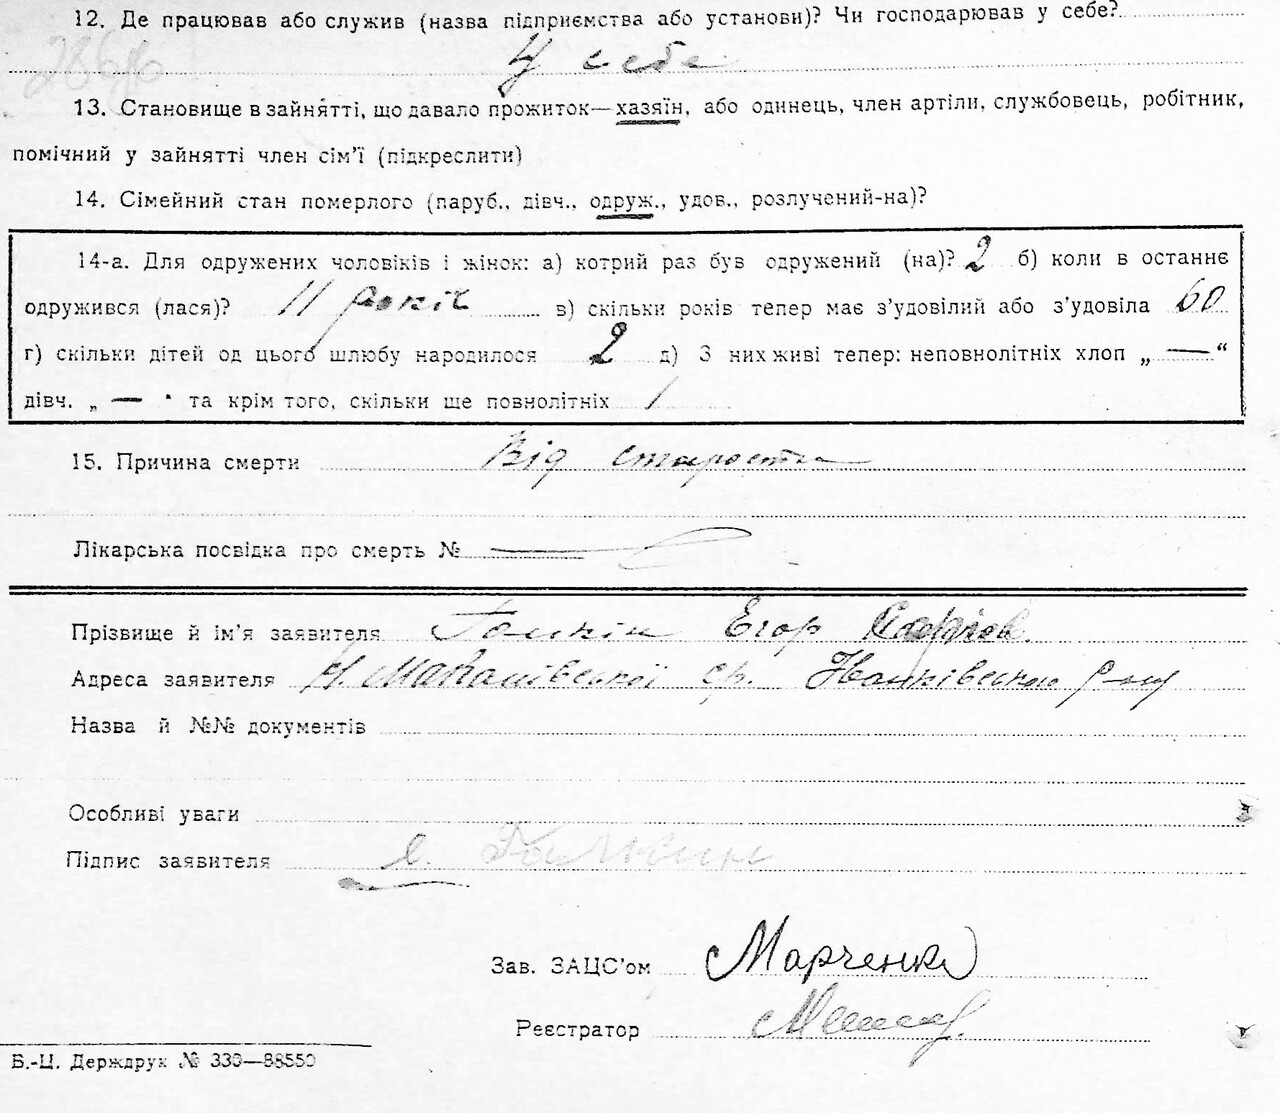 12. Де працював або служив (назва підприємства або установи)? Чи господарював у себе?
У себе
13. Становище в зайнятті, що давало прожиток—хазяїн, або одинець, член артіли, службовець, робітник,
помічний у зайнятті член сім'ї (підкреслити)
14. Сімейний стан померлого (паруб., дівч., одруж., удов., розлучений-на)?
14-а. Для одружених чоловіків і жінок: а) котрий раз був одружений (на)? 2 б) коли в останнє
одружився (лася)? 11 років в) скільки років тепер має з'удовілий або з'удовіла 60
г) скільки дітей од цього шлюбу народилося 2 д) З них живі тепер: неповнолітніх хлоп „ — “
дівч. „ — “ та крім того, скільки ще повнолітніх 1
15. Причина смерти Від старости
Лікарська посвідка про смерть № —
Прізвище й ім'я заявителя Галкін Егор
Адреса заявителя
Назва й №№ документів
Особливі уваги
Підпис заявителя Е. Галкин
Зав. ЗАЦС'ом Марченко
Реєстратор
Б.-Ц. Держдрук № 330—88550